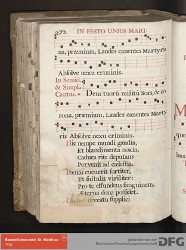 272 IN FESTO UNIUS MART.
na, præmium, Laudes canentes Martyris
Absolve nexu criminis.
In Semid.
& Simpl.
Cantus.
Deus tuorū militū Sors, & co
rona, præmium, Laudes canentes Marty
ris Absolve nexu criminis.
Hic nempe mundi gaudia,
Et blandimenta noxia,
Caduca rite deputans
Pervenit ad cælestia.
Pœnas cucurrit fortiter,
Et sustulit viriliter:
Pro te effundens sanguinem
Æterna dona possidet.
precatu supplici
DFG